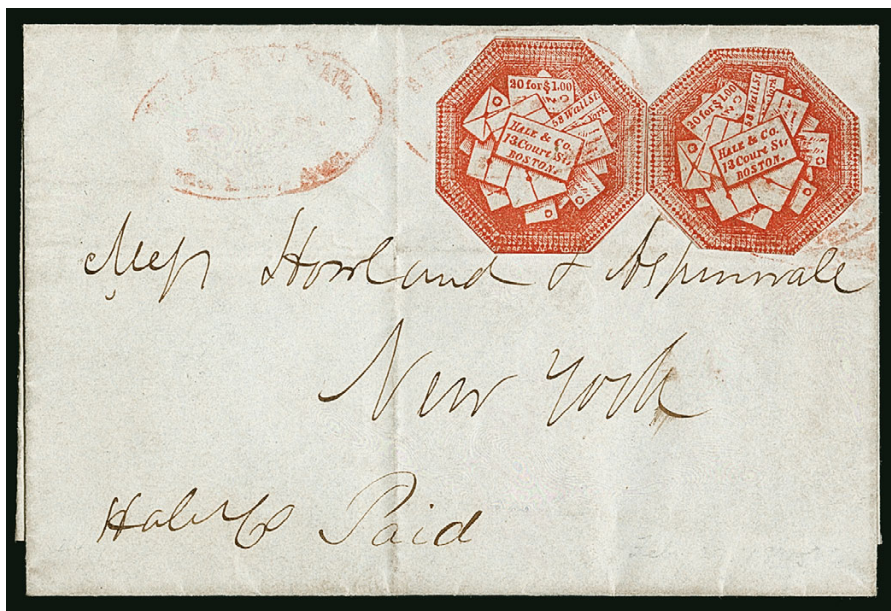 20 for $1.00
58 Wall St.
York
HALE & Co.
13 Court St.
BOSTON.
20 for $1.00
58 Wall St.
York
HALE & Co.
13 Court St.
BOSTON.
Messrs Howland & Aspinwall
New York
Hale & Co Paid